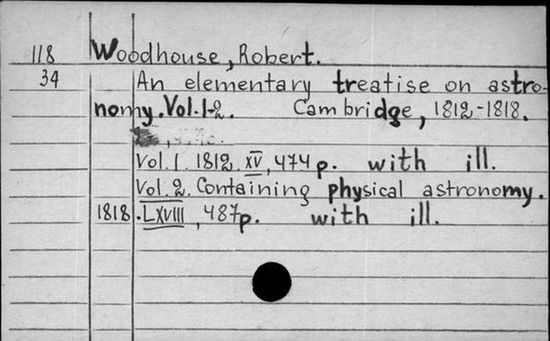 118 Woodhouse, Robert.
34 An elementary treatise on astro-
nomy. Vol. 1-2. Cambridge, 1812-1818.
Vol. 1. 1812. XV, 474 p. with ill.
Vol. 2. Containing physical astronomy.
1818. LXVIII, 487 p. with ill.